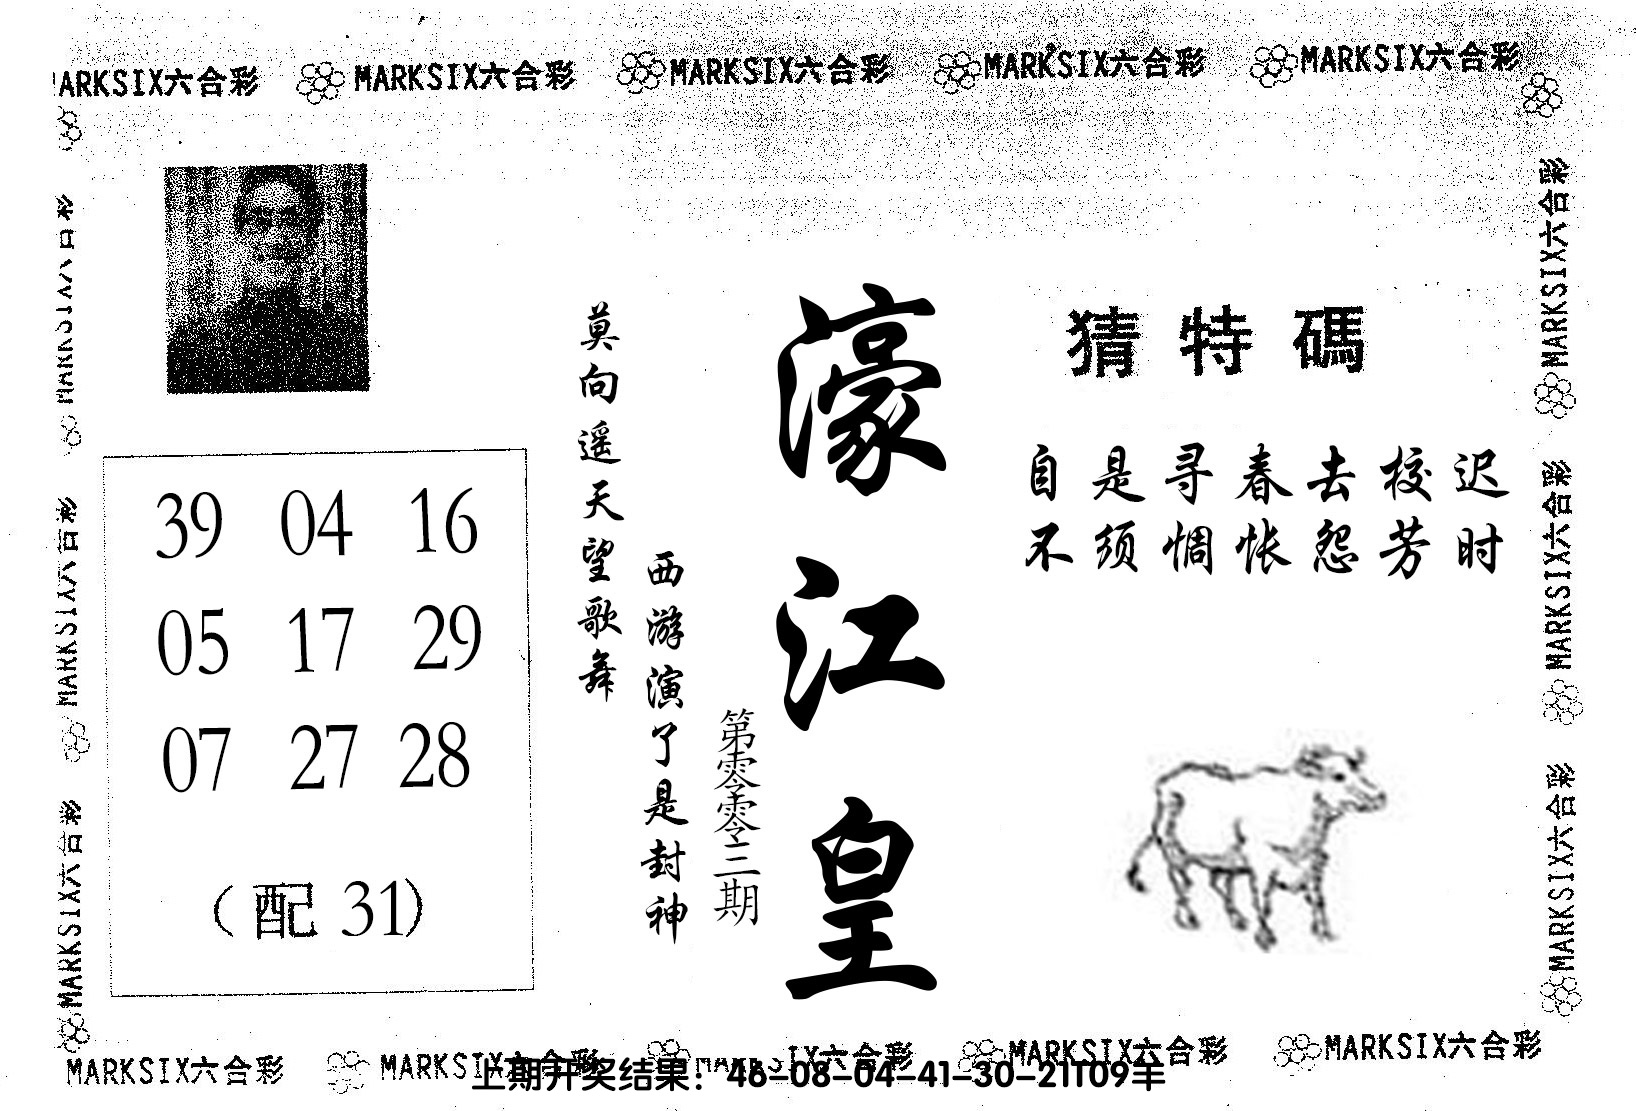 ARKSIX六合彩 MARKSIX六合彩 MARKSIX六合彩 MARKSIX六合彩 MARKSIX六合彩
MARKSIX六合彩
MARKSIX六合彩
MARKSIX六合彩
MARKSIX六合彩
MARKSIX六合彩
39 04 16
05 17 29
07 27 28
(配 31)
莫向遥天望歌舞
西游演了是封神
第零零三期
濠江皇
猜特碼
自是寻春去校迟
不须惆怅怨芳时
MARKSIX六合彩 MARKSIX六合彩 MARKSIX六合彩 MARKSIX六合彩
上期开奖结果：46-08-04-41-30-21T09羊